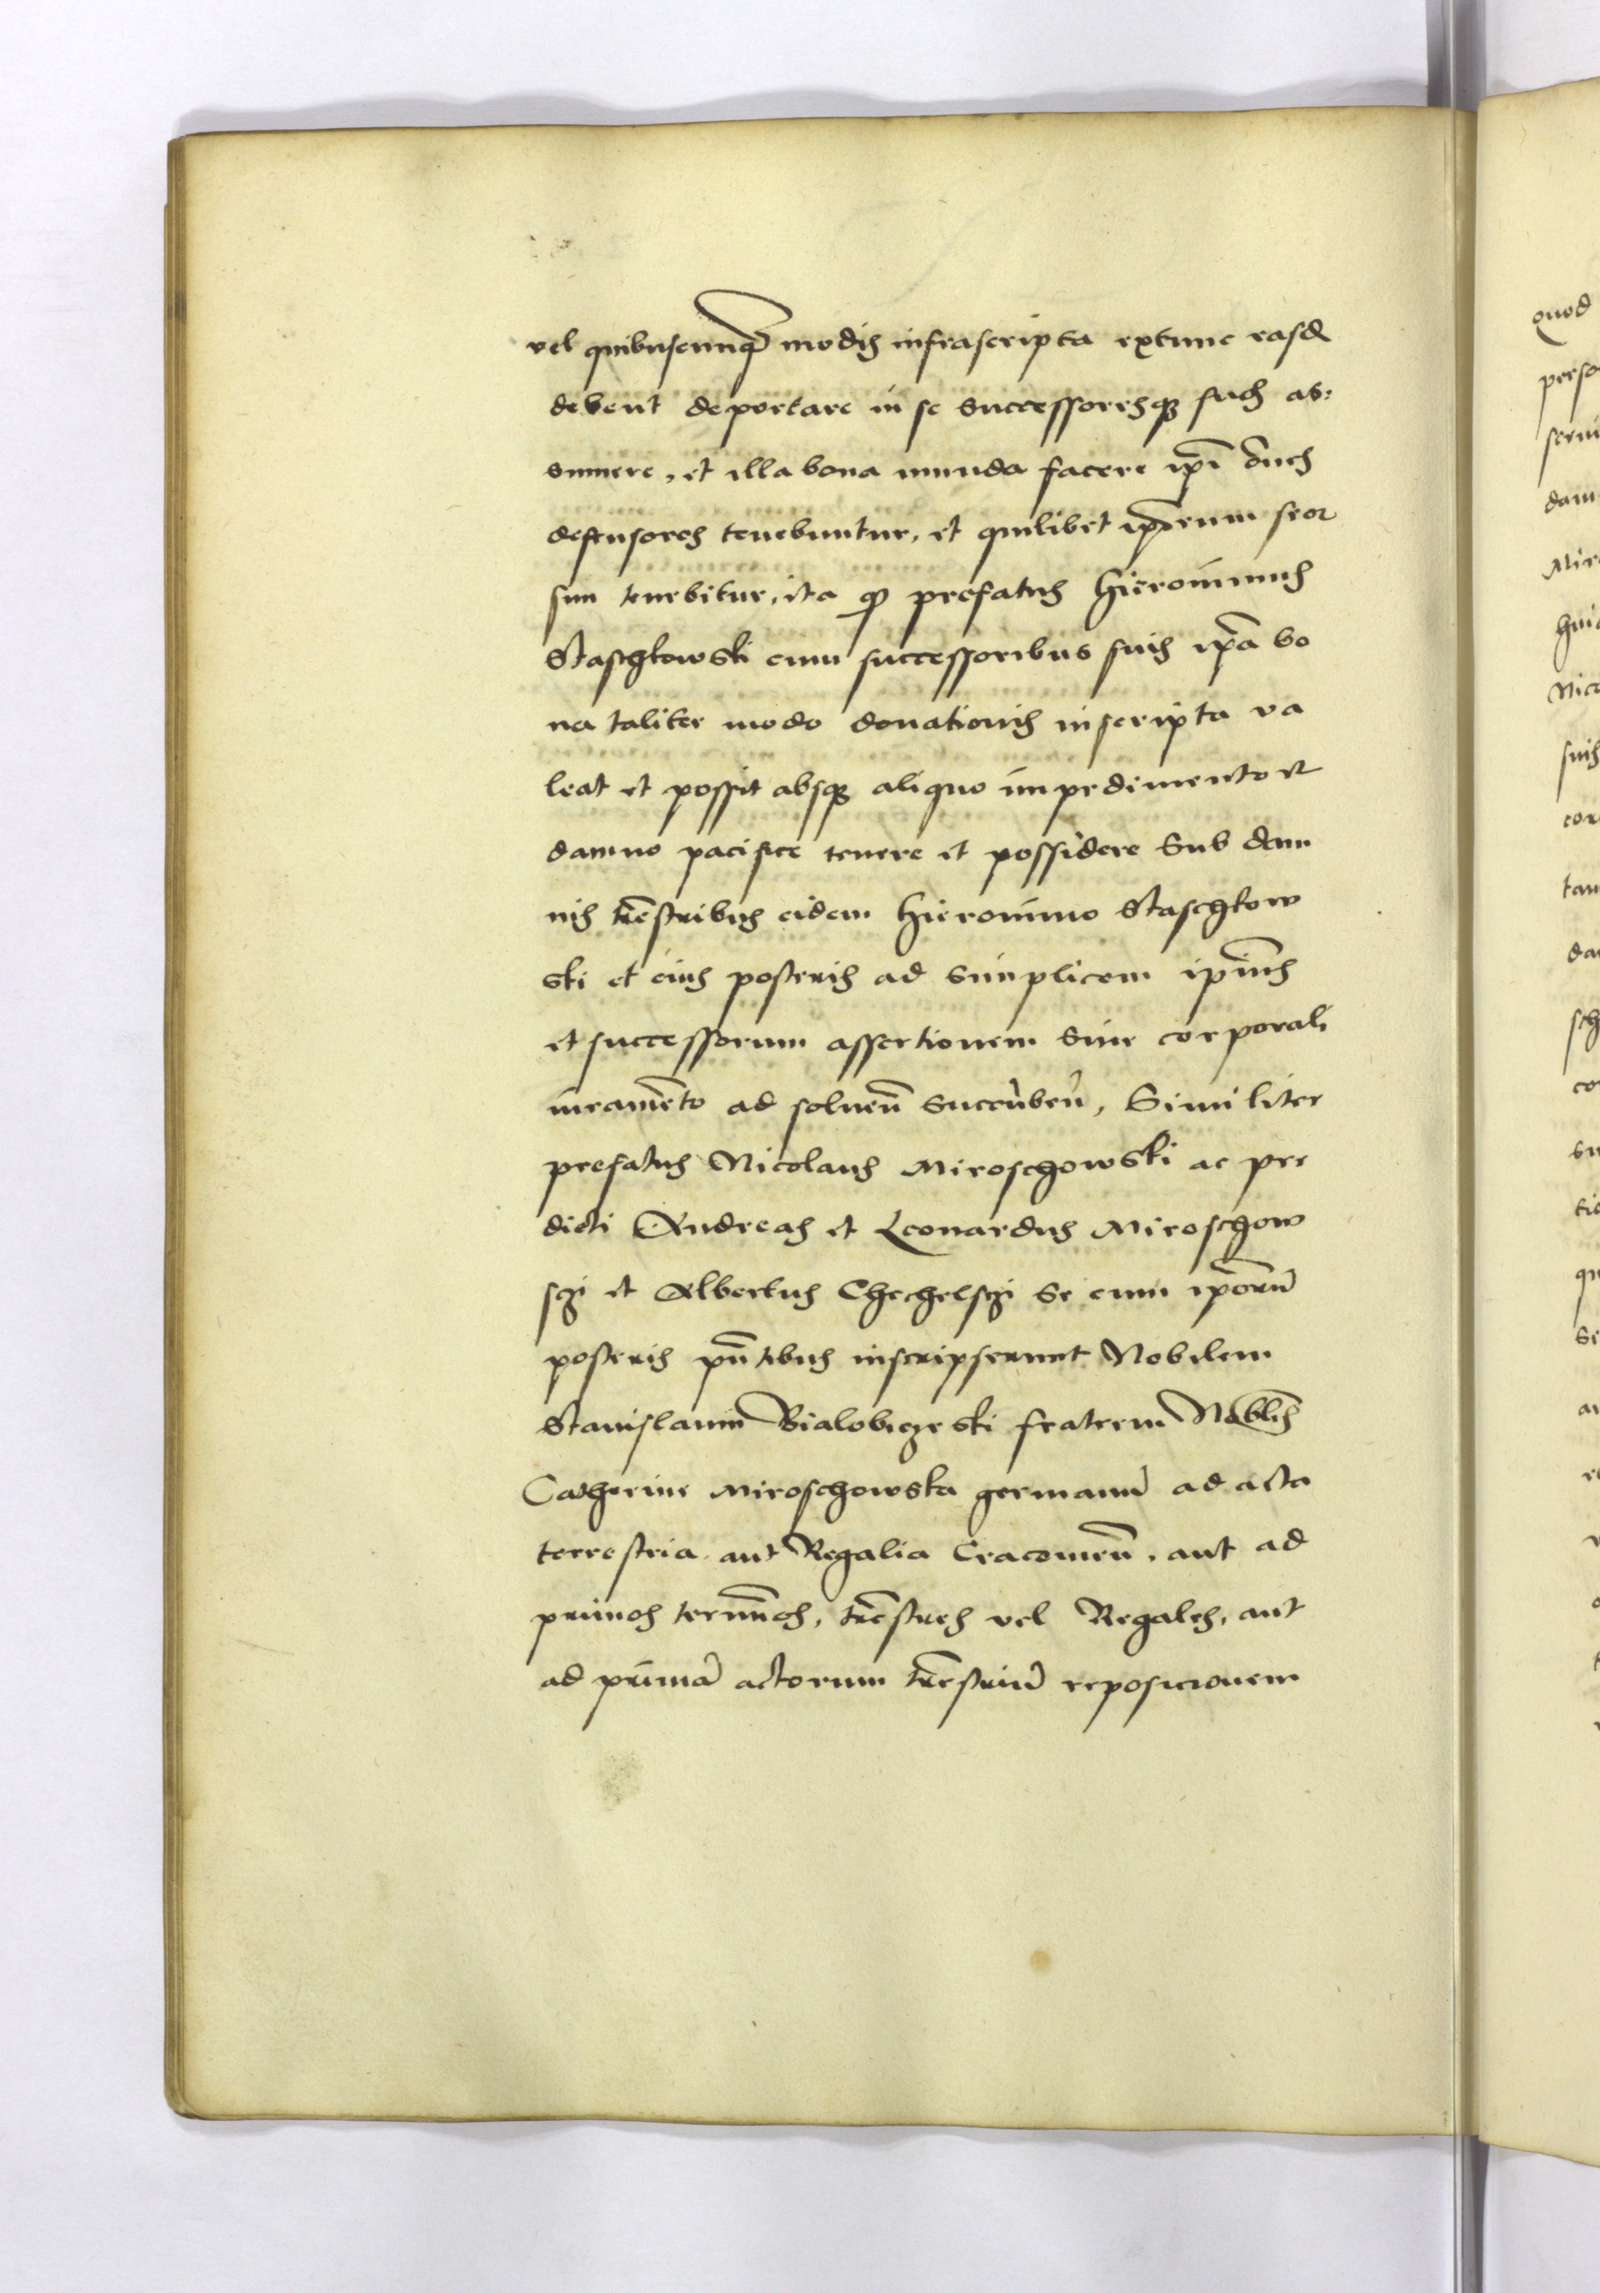 vel quibuscunq̃ modis infrascripta extunc easd
debent deportare in se successoresq; suos as:
sumere, et illa bona munda facere ip̃i om̃es
defensores tenebuntur, et quilibet ip̃orum seor
sim tenebitur, ita q̃ prefatus Hieronimus
Staschkowski cum successoribus suis ip̃a bo
na taliter modo donationis inscripta va
leat et possit absq; aliquo impedimento et
damno pacifice tenere et possidere Sub dam
nis tr̃estribus eidem Hieronimo Staschkow
ski et eius posteris ad simplicem ip̃ius
et successorum assertionem sine corporali
iuramẽto ad soluen̄ succũben̄, Similiter
prefatus Nicolaus Miroschowski ac pre
dicti Andreas et Leonardus Miroschow
sczi et Albertus Chechelsczi se cum ip̃orũ
posteris pñtibus inscripserunt Nobilem
Stanislaum Bialobrzeski fratrem Nobl̃is
Catherine Miroschowska germanũ ad acta
terrestria aut Regalia Cracouien̄, aut ad
primos termĩos, tr̃estres vel Regales, aut
ad primã actorum tr̃estriũ reposicionem
quod
perso
dam
Mir
Nico
suis
tam